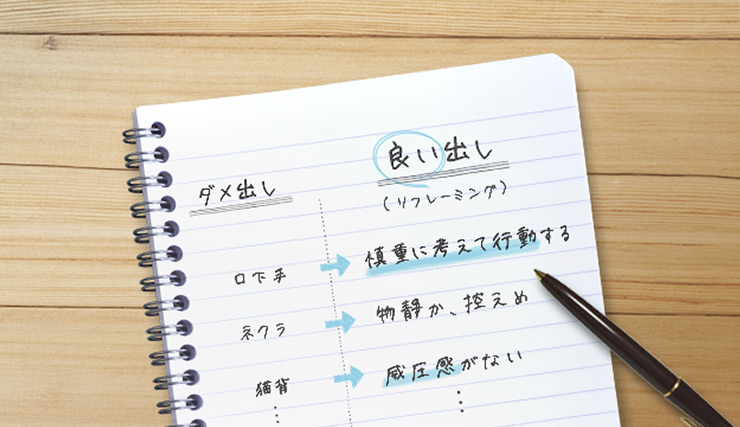 ダメ出し
良い出し
(リフレーミング)
口下手
慎重に考えて行動する
ネクラ
物静か、控えめ
猫背
威圧感がない